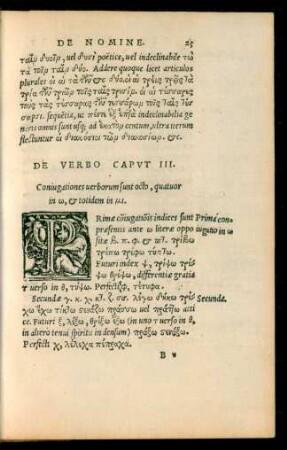 DE NOMINE. 25
ταῖμ δυοῖμ, uel δυσὶ poëtice, uel indeclinabile τὼ
τὰ τοῖμ ταῖμ δύο. Addere quoque licet articulos
plurales οἱ αἱ τὰ
τρία τῶμ τριῶμ τοῖς ταῖς τρισίμ. οἱ αἱ τέσσαρες
τοὺς τὰς τέσσαρας τῶμ τεσσάρωμ τοῖς ταῖς τέσ
σαρσι. sequētia, ut πέντε ἓξ ἑπτὰ indeclinabilia ge
neris omnis sunt usq; ad ἑκατὸμ centum, ultra uerum
flectuntur οἱ διακόσιοι τῶμ διακοσίωμ. &c.
DE VERBO CAPVT III.
Coniugationes uerborum sunt octo, quatuor
in ω, & totidem in μι.
PRimæ cōiugatiōis indices sunt Prima con
præsentis ante ω literæ oppo iugatio in ω
sitæ β. π. φ. & πτ. τρίβω
τρέπω γράφω τύπτω.
Futuri index ψ, τρίψω τρέ
ψω θρέψω, differentiæ gratia
τ uerso in θ, τύψω. Perfecti φ, τέτυφα.
Secundæ γ. κ. χ. κτ. ζ. σσ. λέγω Secunda.
χω ἔχω τίκτω πράσσω uel πράττω atti
ce. Futuri ξ, λέξω, θρέξω ἕξω (in uno τ uerso in θ,
in altero tenui spiritu in densum) πράξω
Perfecti χ, λέλεχα πέπραχα.
B v